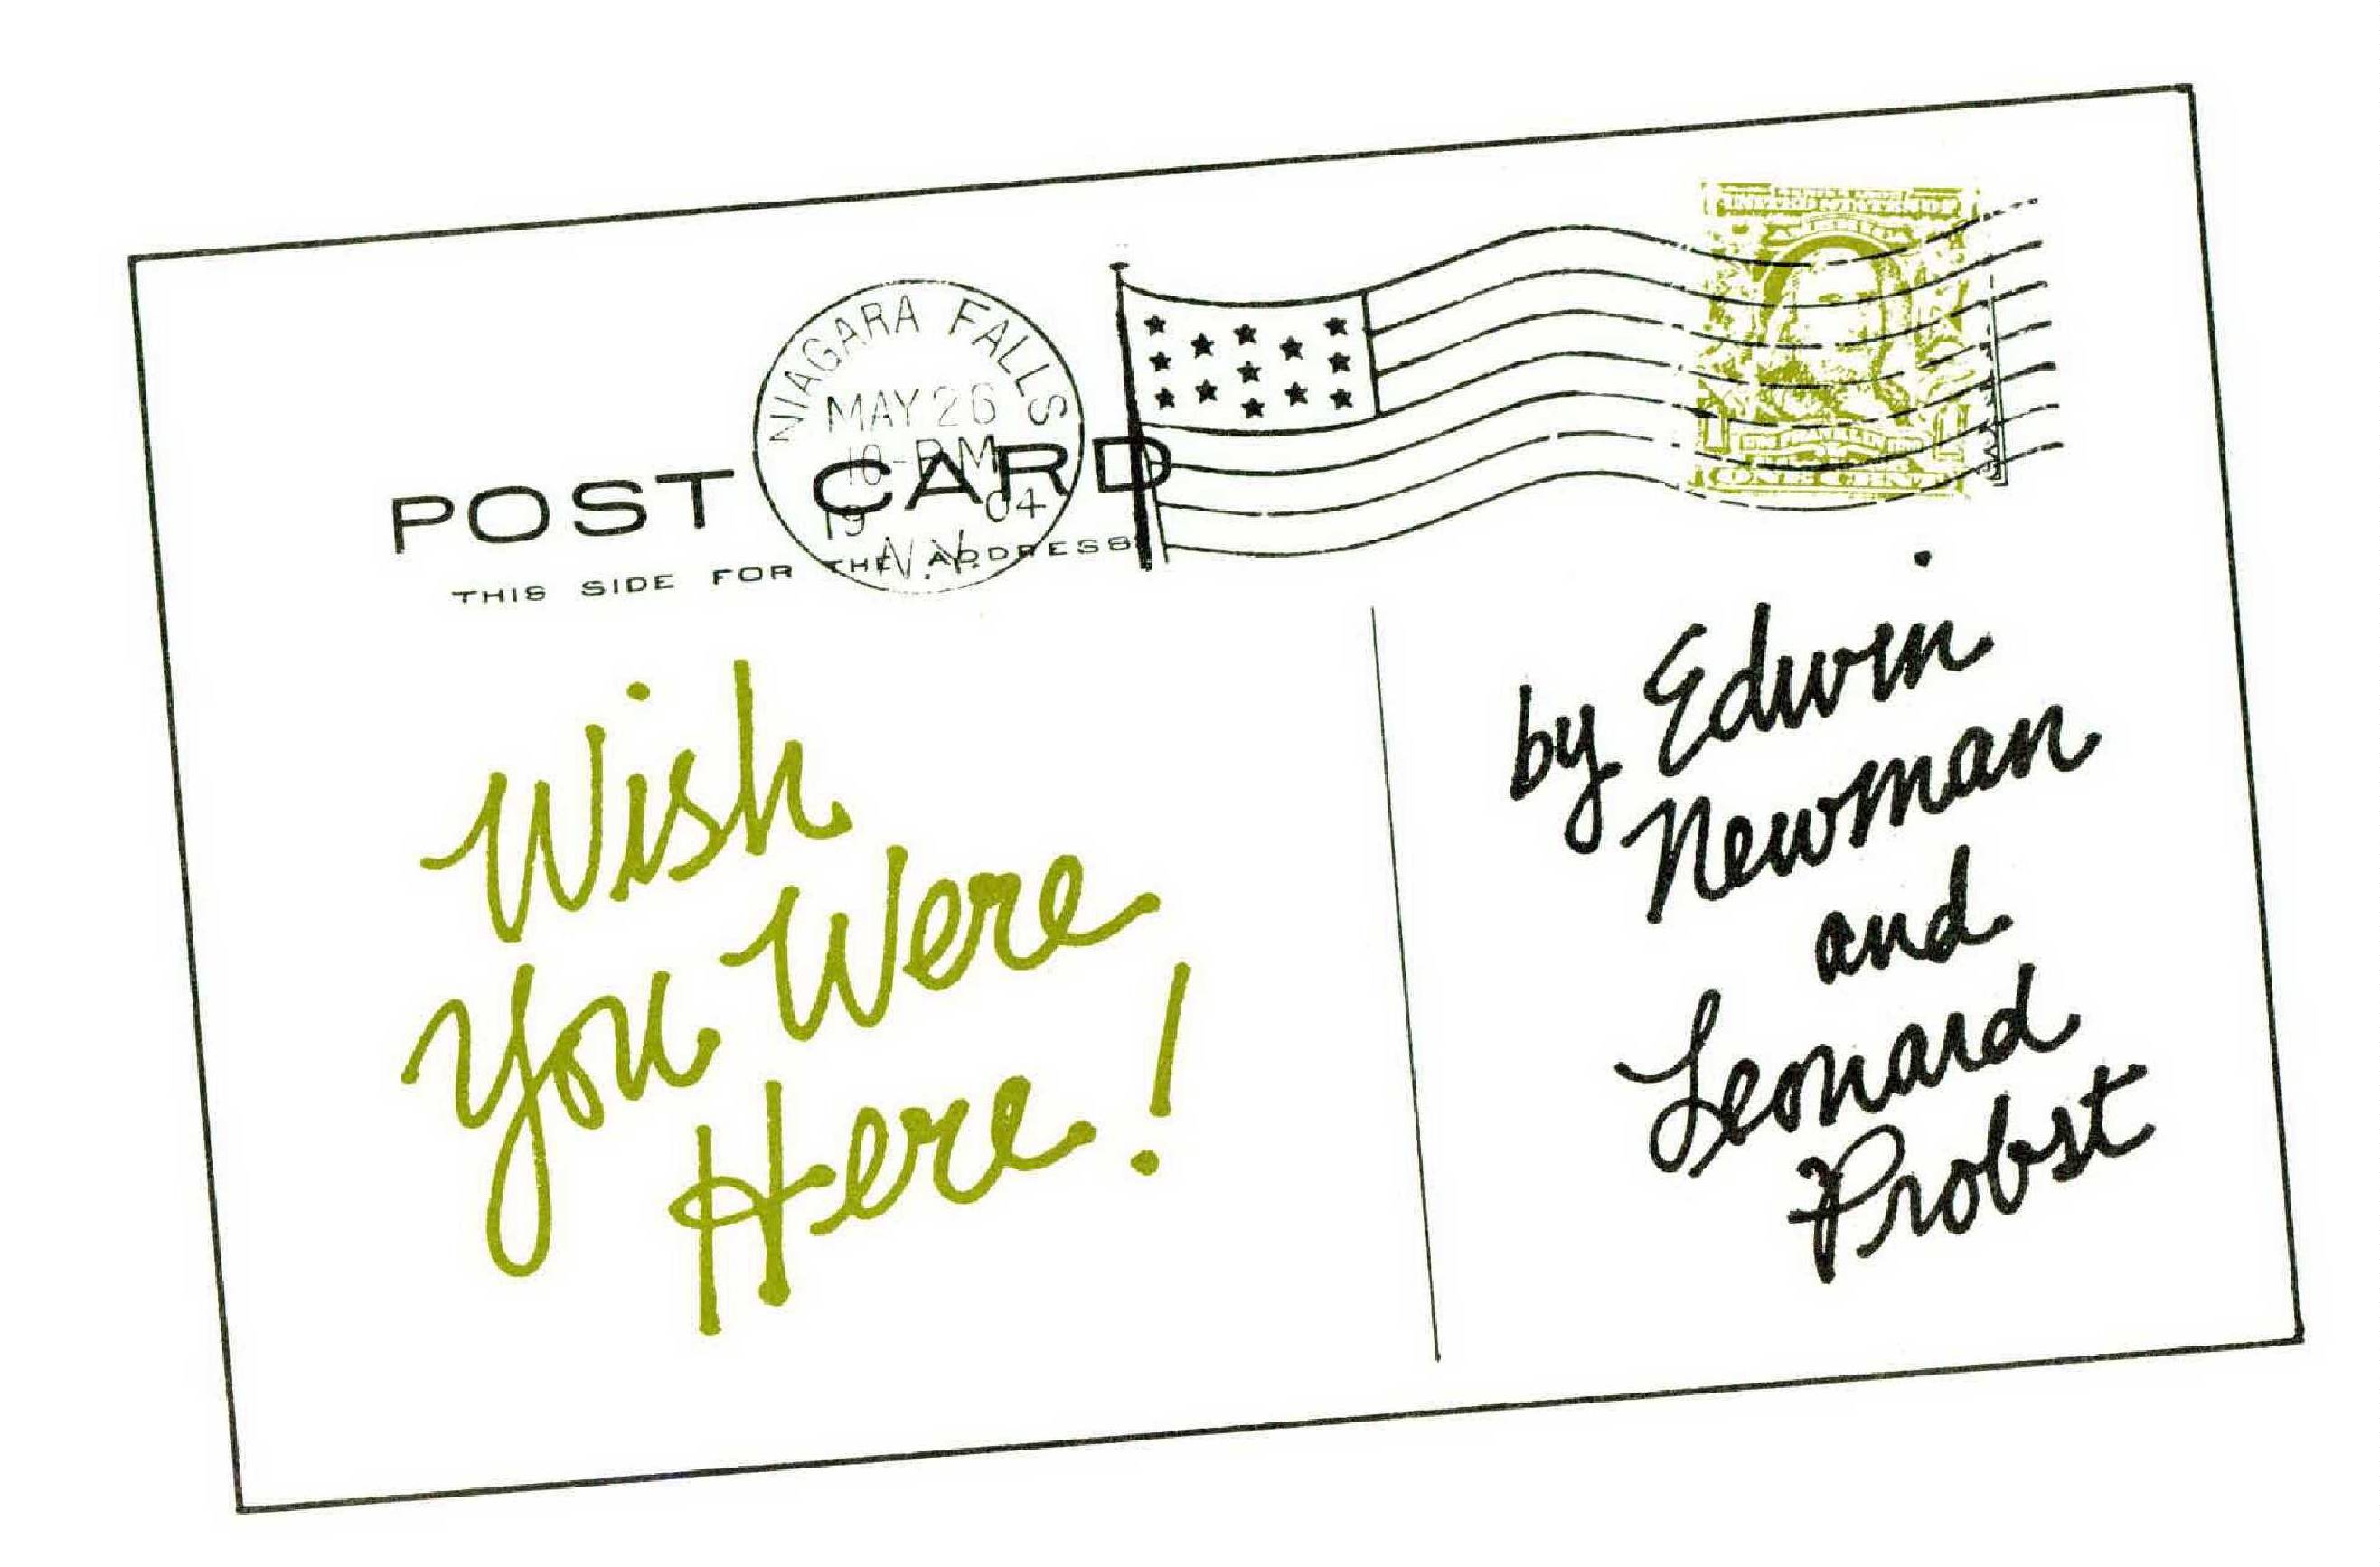 UNITED STATES OF
AMERICA
ONE CENT
NIAGARA FALLS
MAY 26
10-PM
19 04
N.Y.
POST CARD
THIS SIDE FOR THE ADDRESS
Wish
You Were
Here!
by Edwin
Newman
and
Leonard
Probst